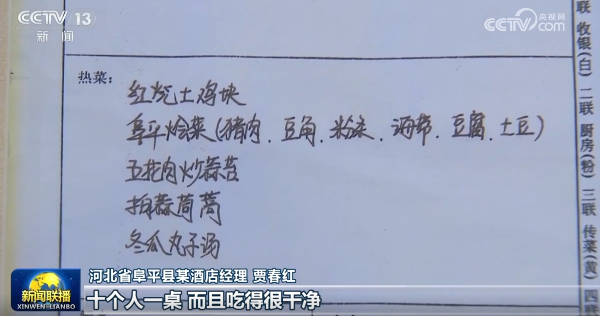 CCTV 13
新闻
CCTV 央视网
com
热菜:
红烧土鸡块
阜平烩菜(猪肉、豆角、粉条、海带、豆腐、土豆)
五花肉炒蒜苔
拍蒜茼蒿
冬瓜丸子汤
联 收银(白) 二联 厨房(粉) 三联 传菜(黄) 四联
河北省阜平县某酒店经理 贾春红
新闻联播
XINWEN-LIANBO
十个人一桌 而且吃得很干净